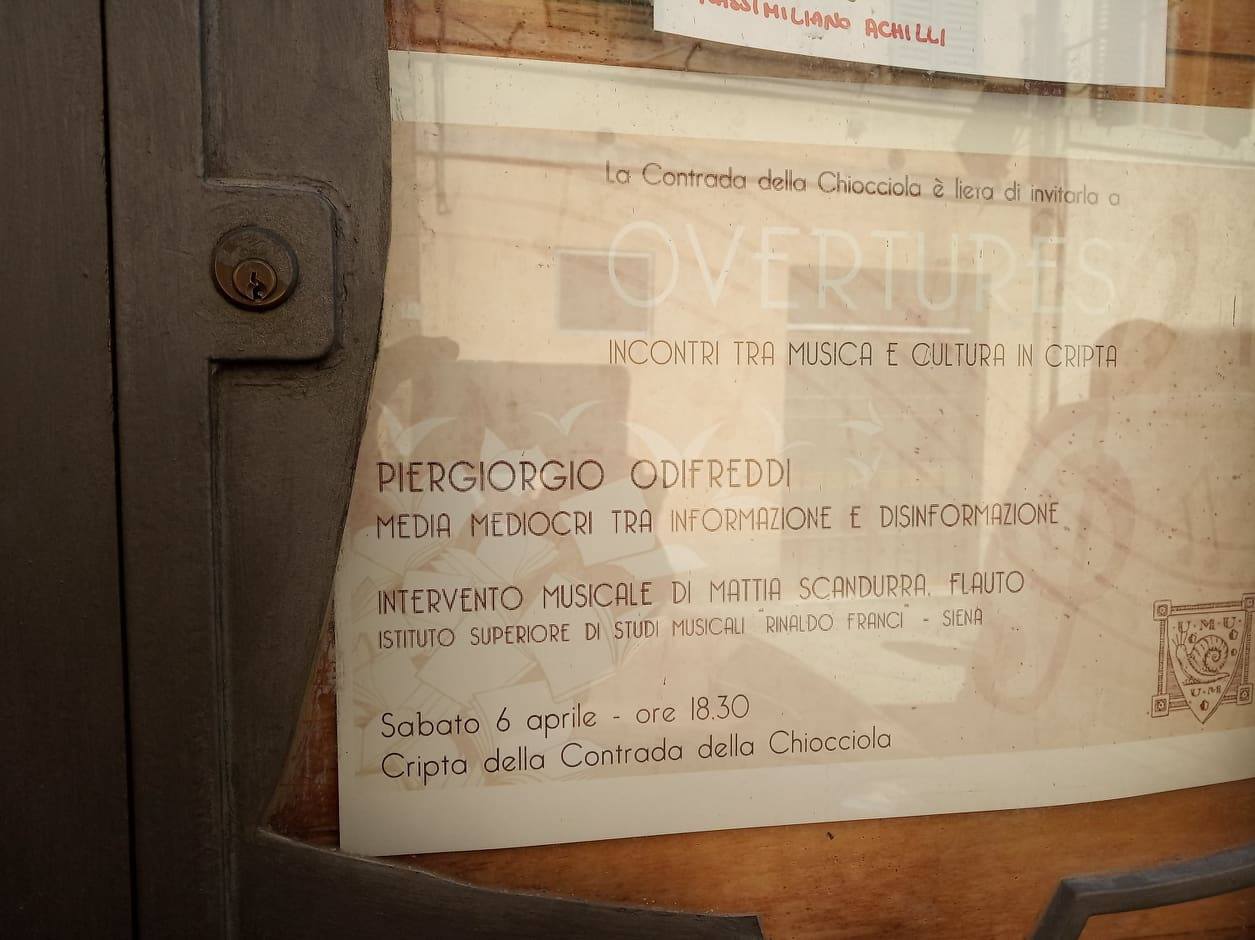 MASSIMILIANO ACHILLI
La Contrada della Chiocciola è lieta di invitarla a
OVERTURES
INCONTRI TRA MUSICA E CULTURA IN CRIPTA
PIERGIORGIO ODIFREDDI
MEDIA MEDIOCRI TRA INFORMAZIONE E DISINFORMAZIONE
INTERVENTO MUSICALE DI MATTIA SCANDURRA, FLAUTO
ISTITUTO SUPERIORE DI STUDI MUSICALI "RINALDO FRANCI" - SIENA
U·M·U·
U·M
Sabato 6 aprile - ore 18.30
Cripta della Contrada della Chiocciola